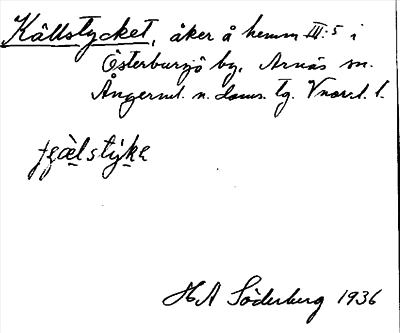 Källstycket, åker å hemm III:5 i
Österbursjö by, Arnäs sn.
Ångerml. n. doms. tg. Vnorrl. l.
HA Söderberg 1936